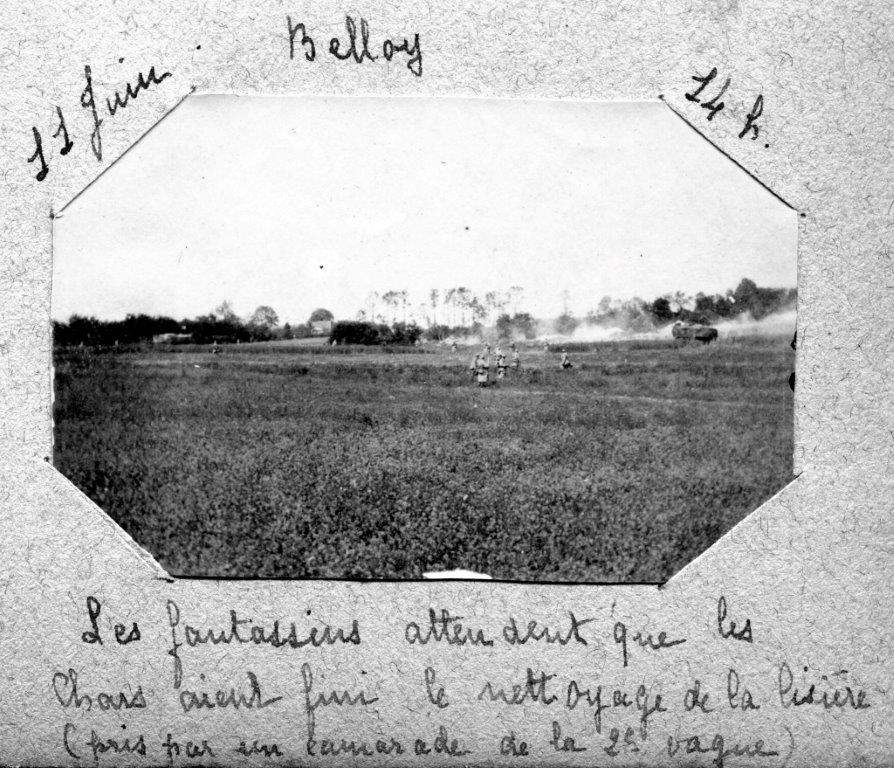 Belloy
11 Juin
14 h.
Les fantassins attendent que les
Chars aient fini le nettoyage de la lisière
(pris par un camarade de la 2è vague)